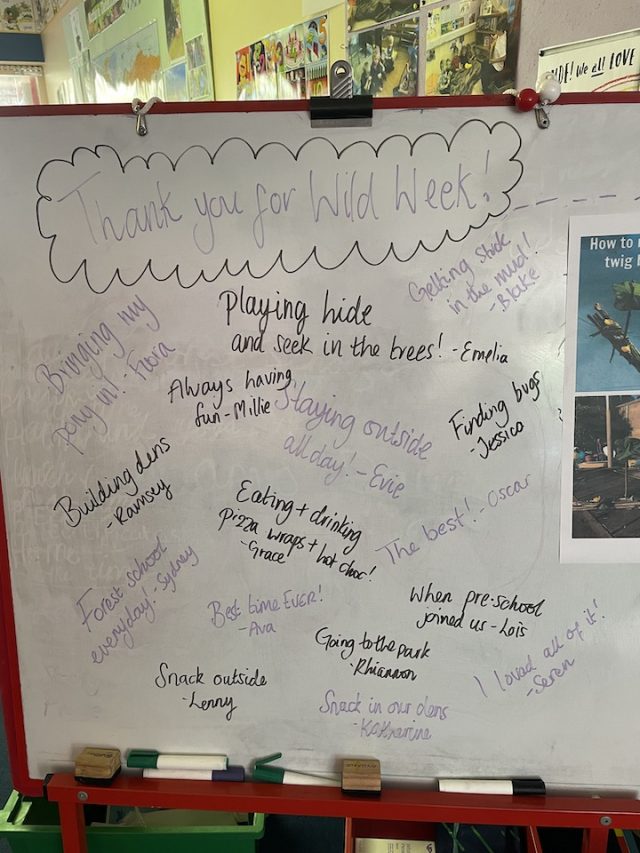 DE! We all LOVE
Thank you for Wild Week!
Getting stuck
in the mud!
- Blake
How to
twig
Playing hide
and seek in the trees! - Emelia
Bringing my
pony in! - Flora
Always having
fun - Millie
Staying outside
all day! - Evie
Finding bugs
- Jessica
Building dens
- Ramsey
Eating + drinking
pizza wraps + hot choc!
- Grace
The best! - Oscar
Forest school
everyday! - Sydney
Best time EVER!
- Ava
When pre-school
joined us - Lois
Going to the park
- Rhiannon
I loved all of it!
- Seren
Snack outside
- Lenny
Snack in our dens
- Katherine